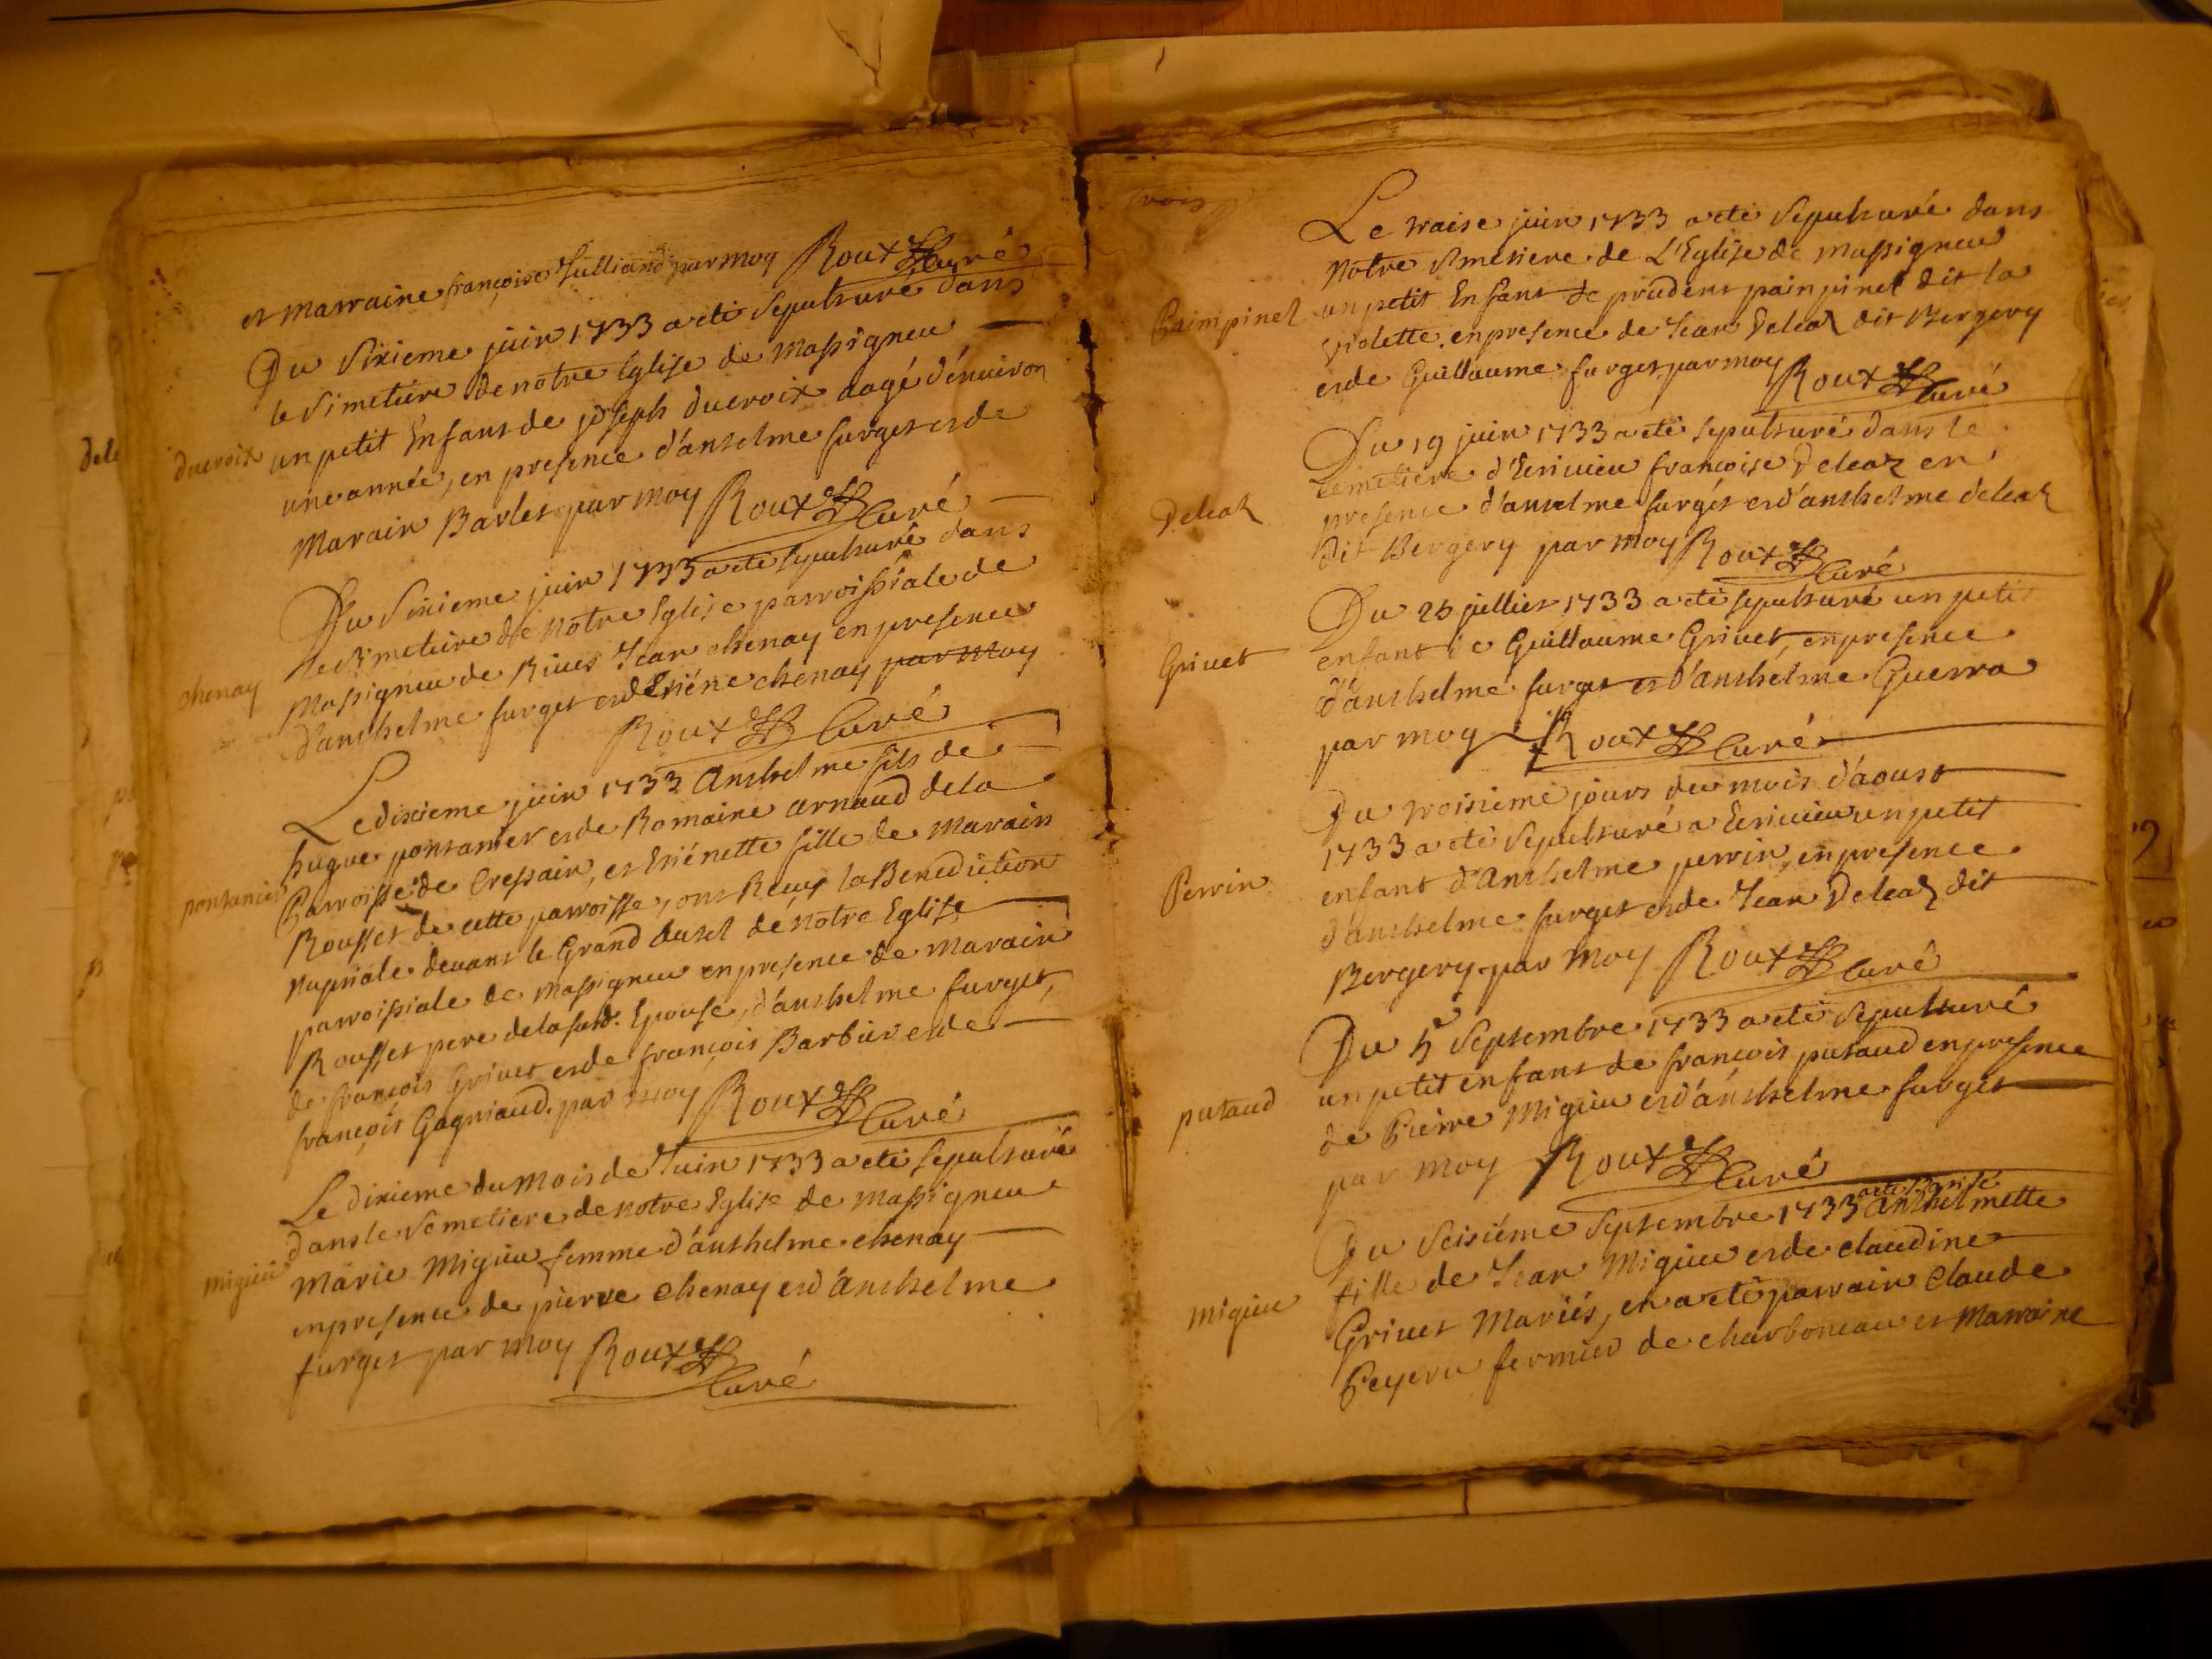 et marraine françoise Julliand par moy Roux Curé
Du Sixieme juin 1733 a eté sepulturé dans
le Simetiere de notre Eglise de Massigneu
ducroix un petit Enfant de joseph ducroix aagé d'énuiron
une année, en presence d'antelme furget et de
Marain Barlet par moy Roux Curé
Du Sixieme juin 1733 a eté sepulturé dans
le Simetiere de notre Eglise parroissiale de
chenay Massigneu de Riues Jean chenay en presence
d'anthelme furget et d'Etiéne chenay par moy
Roux Curé
Le dixieme juin 1733 Anthelme fils de
hugue pontanier et de Romaine arnaud de la
pontanier Parroisse de Cressain, et Etiénette fille de Marain
Rousset de cette parroisse, ont Reçus la Benediction
nuptiale deuant le Grand Autel de notre Eglise
parroissiale de Massigneu en presence de Marain
Rousset pere de la susd. Epouse, d'anthelme furget,
de françois Griuet et de françois Barbier et de
françois Gagniaud. par moy Roux Curé
Le dixieme du mois de Juin 1733 a eté sepulturée
dans le Semetiere de notre Eglise de Massigneu
migieu Marie Migieu femme d'anthelme chenay
en presence de pierre chenay et d'anthelme
furget par moy Roux Curé
Le traise juin 1733 a eté sepulturé dans
notre Simetiere de L'Eglise de Massigneu
Paimpinel un petit Enfant de prudent painpinel dit la
violette. en presence de Jean Deleaz dit Bergery
et de Guillaume furget par moy Roux Curé
Du 19 juin 1733 a eté sepulturé dans le
Cemetiere d'Ecriuieu françoise Deleaz en
Deleaz presence d'antelme furgét et d'anthelme deleaz
dit Bergery par moy Roux Curé
Du 25 juillet 1733 a eté sepulturé un petit
Griuet enfant de Guillaume Griuet, en presence
d'anthelme furget et d'anthelme Guerra
par moy Roux Curé
Du troisieme jours du mois d'aoust
1733 a eté sepulturé a Ecriuieu un petit
Perrin enfant d'Anthelme perrin, en presence
d'anthelme furget et de Jean Deleaz dit
Bergery. par moy Roux Curé
Du 5 Septembre 1733 a eté sepulturé
un petit enfant de françois putaud en presence
putaud de Pierre Migieu et d'ánthelme furget
par moy Roux Curé
Du Seisiéme Septembre 1733 a eté Batisé Anthelmette
fille de Jean Migieu et de claudine
migieu Griuet Mariés, en a eté parrain Claude
Peyeru fermier de charboneau et Marraine